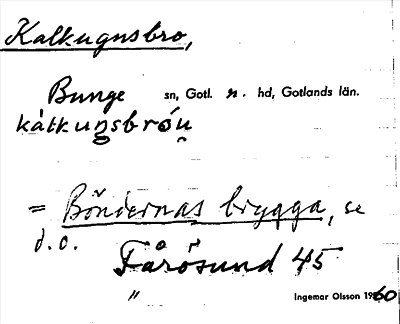 Kalkugnsbro,
Bunge sn, Gotl. n. hd, Gotlands län.
kàlkuṉsbróu̯
= Böndernas brygga, se
d.o.
Fårösund 45
"
Ingemar Olsson 1960